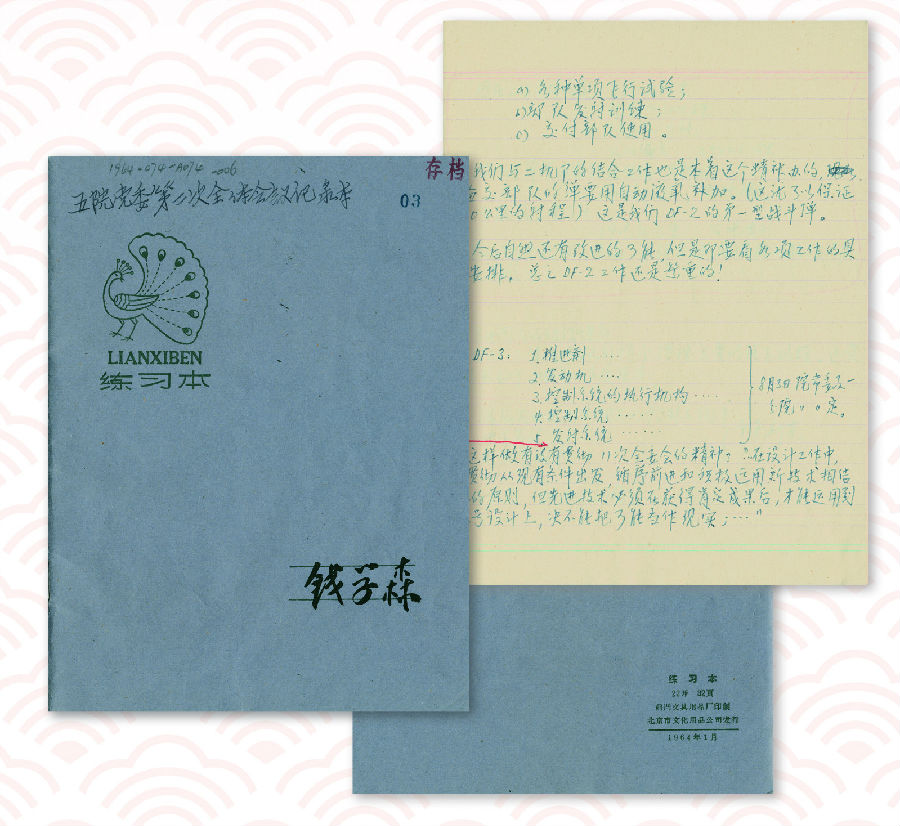 1964-074-A074-006
存档
五院党委第二次全体会议记录本
03
LIANXIBEN
练习本
钱学森
a) 各种单项飞行试验；
b) 部队发射训练；
c) 交付部队使用。
我们与二机部的结合工作也是本着这个精神办的，
交部队的弹要用自动液氧补加。（这就可以保证
0公里的射程）这是我们DF-2的第一型战斗弹。
今后自然还有改进的可能，但是那要看各项工作的具
安排。总之DF-2工作还是繁重的！
DF-3：
1. 推进剂 ····
2. 发动机 ····
3. 控制系统的执行机构 ····
4. 控制系统 ······
5. 发射系统 ······
8月3日院常委又一
定。
这样做有没有贯彻11次全委会的精神？“在设计工作中，
贯彻从现有条件出发，循序前进和积极运用新技术相结
的原则，但先进技术必须在获得肯定成果后，才能运用到
号设计上，决不能把可能当作现实；···”
练习本
32页
文具用品厂印制
北京市文化用品公司发行
1964年1月